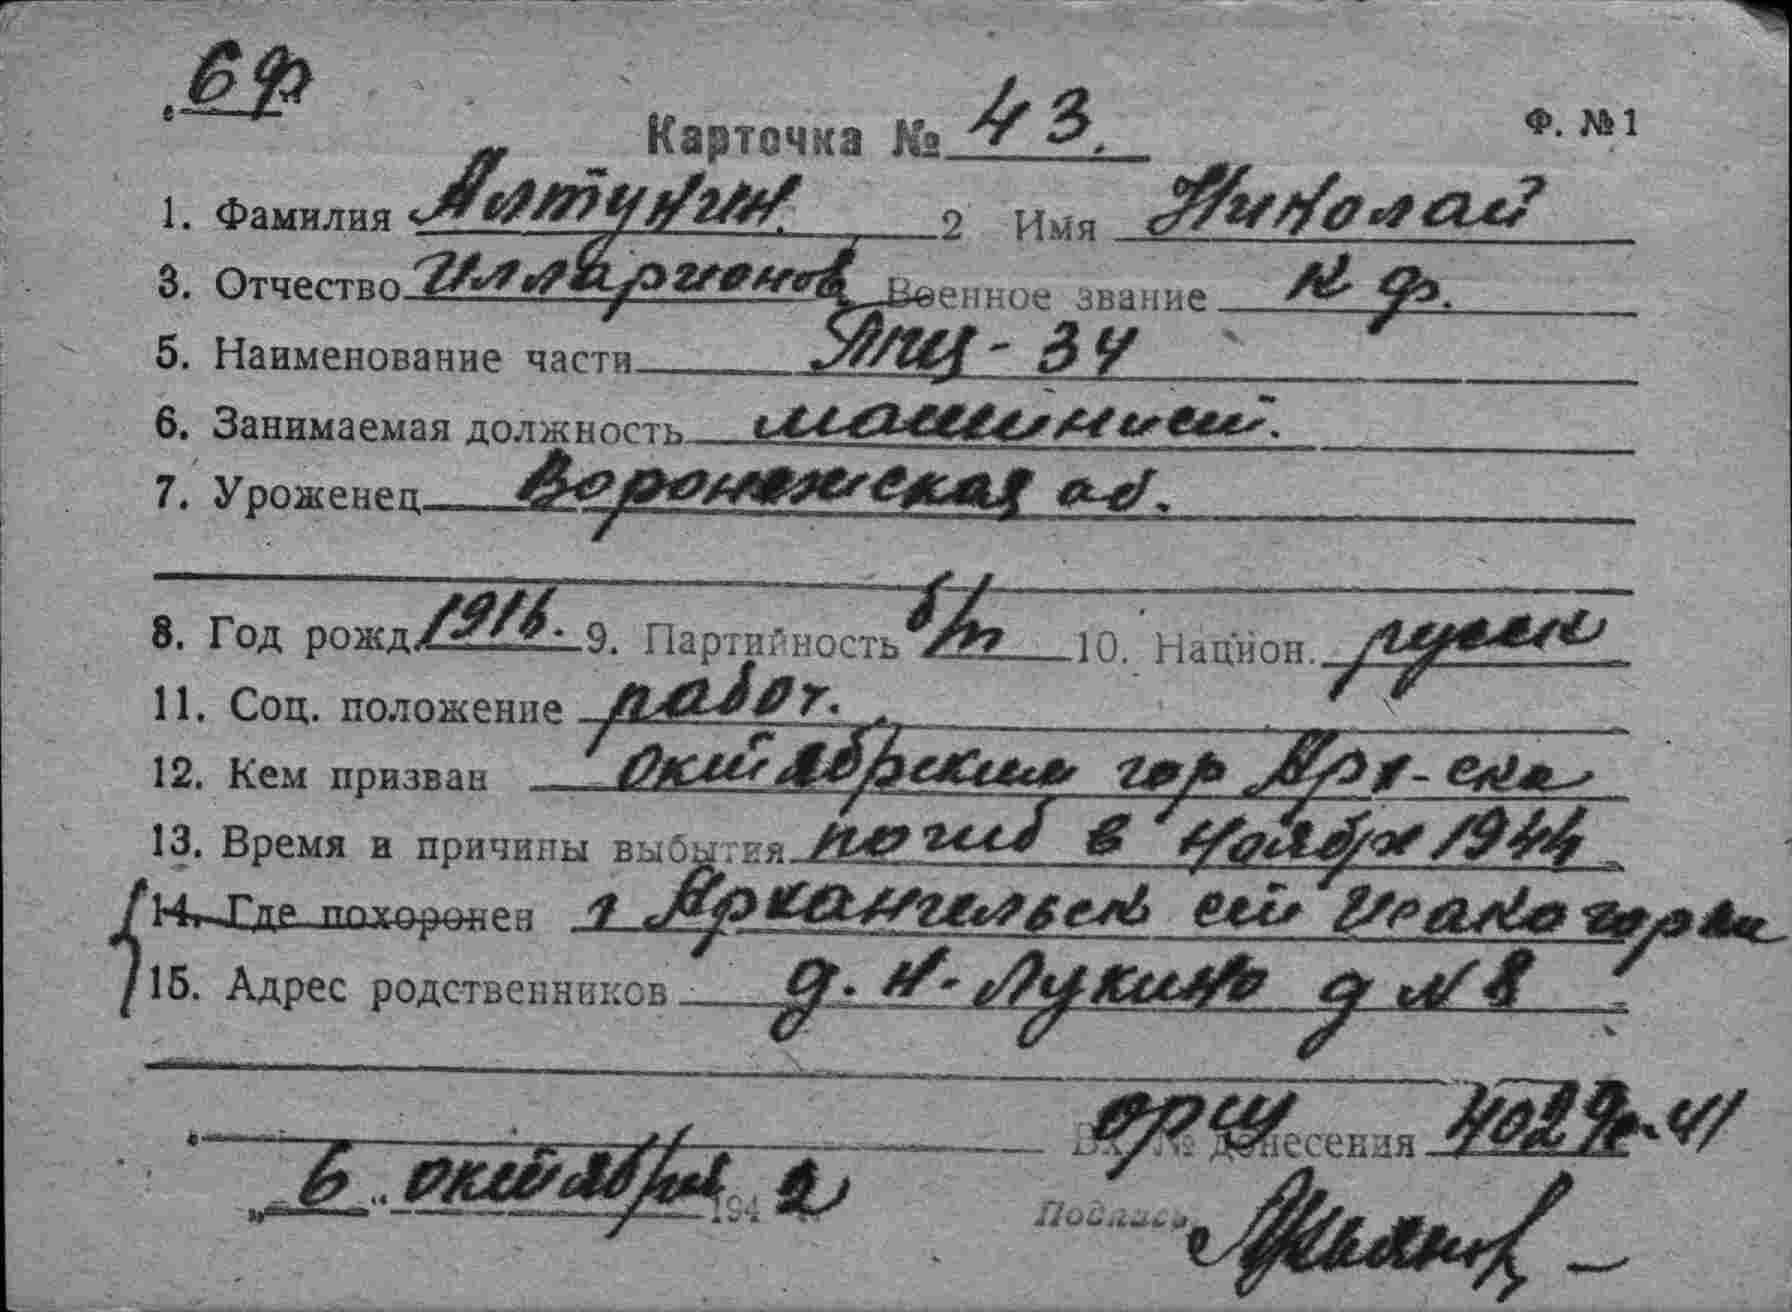 6ф
Карточка № 43.
Ф. №1
1. Фамилия Алтунин. 2 Имя Николай
3. Отчество Илларионов Военное звание к ф.
5. Наименование части Япщ - 34
6. Занимаемая должность машинист.
7. Уроженец Воронежская об.
8. Год рожд. 1916. 9. Партийность б/п 10. Национ. русск
11. Соц. положение работ.
12. Кем призван Октябрьским гор Арх-ска
13. Время и причины выбытия погиб в Ноябре 1944
14. Где похоронен г Архангельск ст Исакогорка
15. Адрес родственников д. Н-Лукино д № 8
Вх. № донесения 4029
„ 6 „ октября 194 2
Подпись